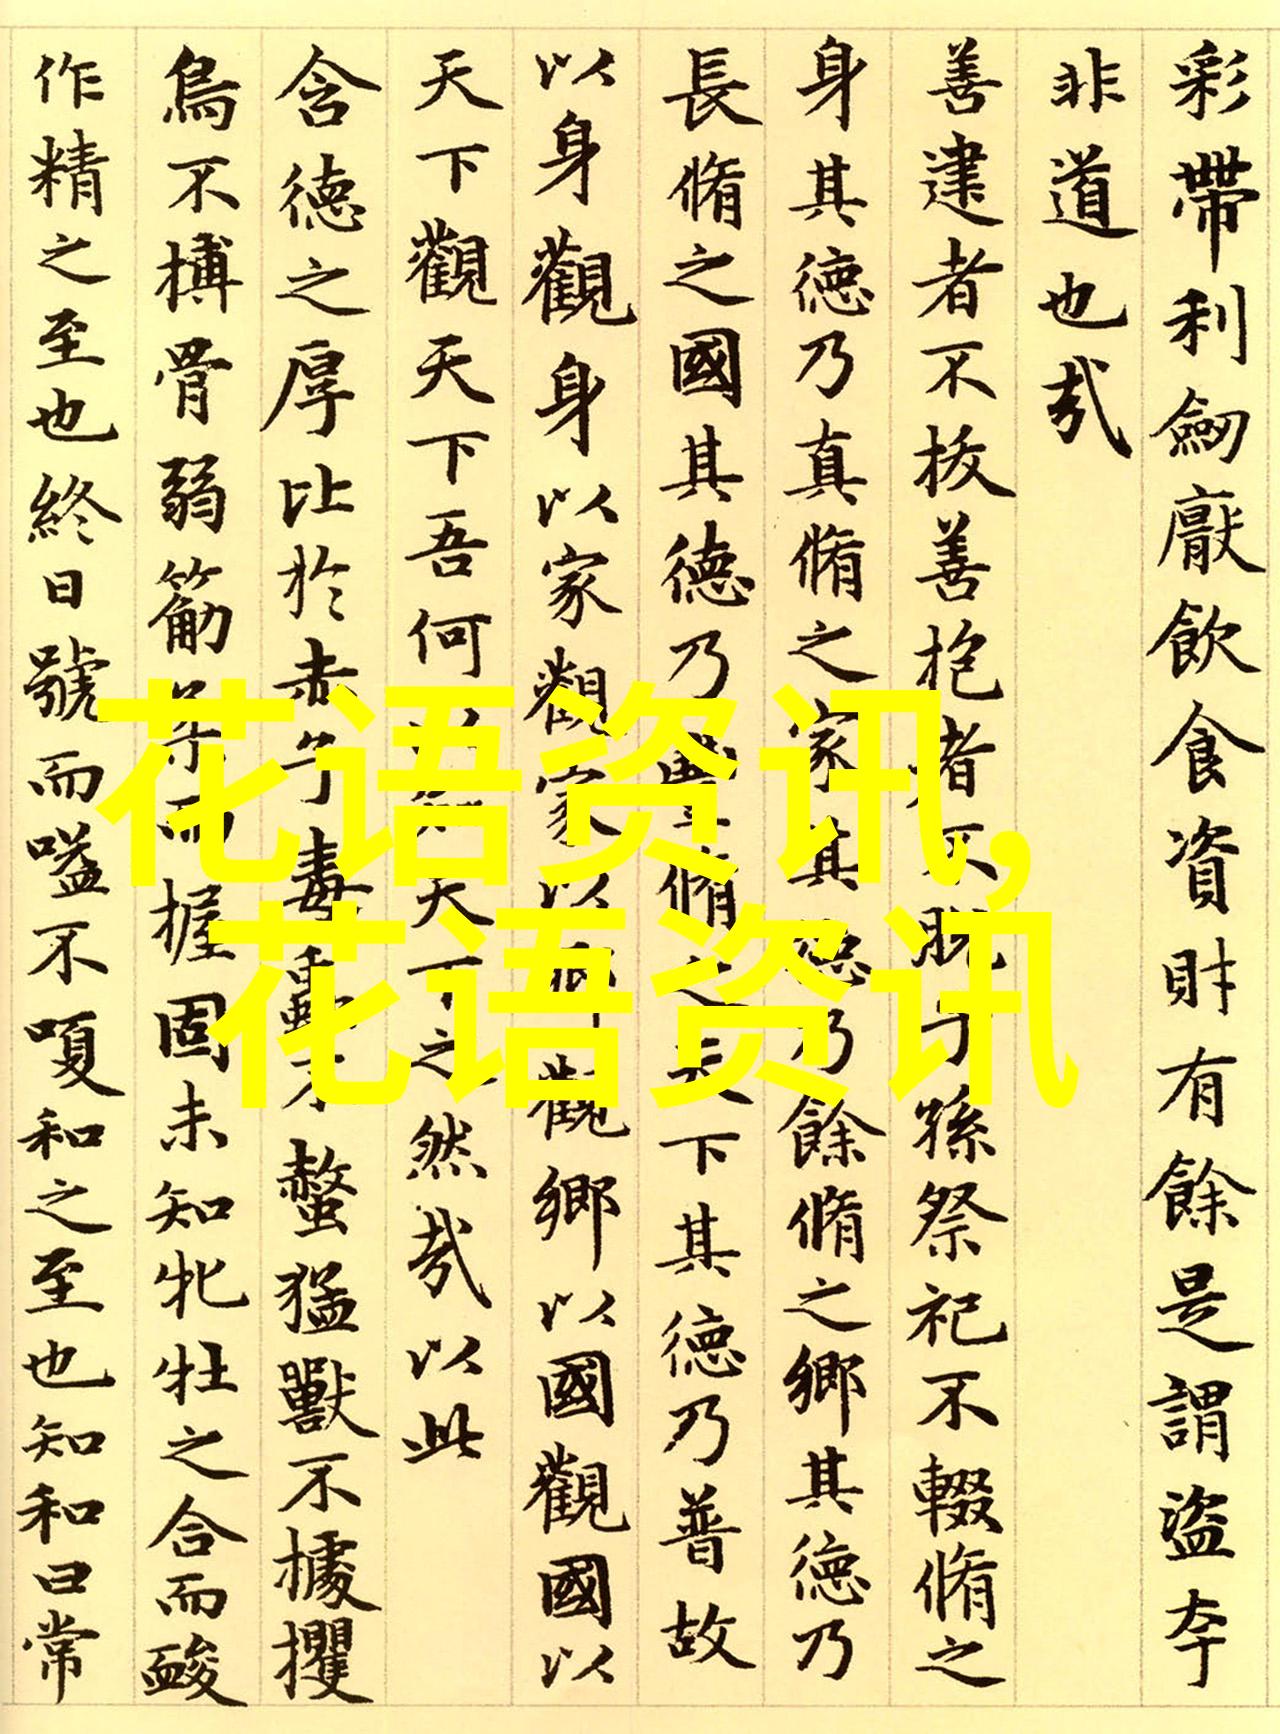 彩帶利劒厭飲食資財有餘是謂盜夸
非道也哉
善建者不拔善抱者不脫子孫祭祀不輟脩之
身其德乃真脩之家其德乃餘脩之鄉其德乃
長脩之國其德乃豐脩之天下其德乃普故
以身觀身以家觀家以鄉觀鄉以國觀國以
天下觀天下吾何以知天下之然哉以此
含德之厚比於赤子毒蟲不螫猛獸不據攫
鳥不搏骨弱筋柔而握固未知牝牡之合而酸
作精之至也終日號而嗌不嗄和之至也知和曰常
花语资讯,
花语资讯